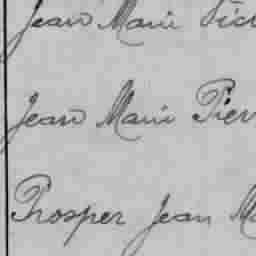 Jean Marie Vict
Jean Marie Pierr
Prosper Jean Ma